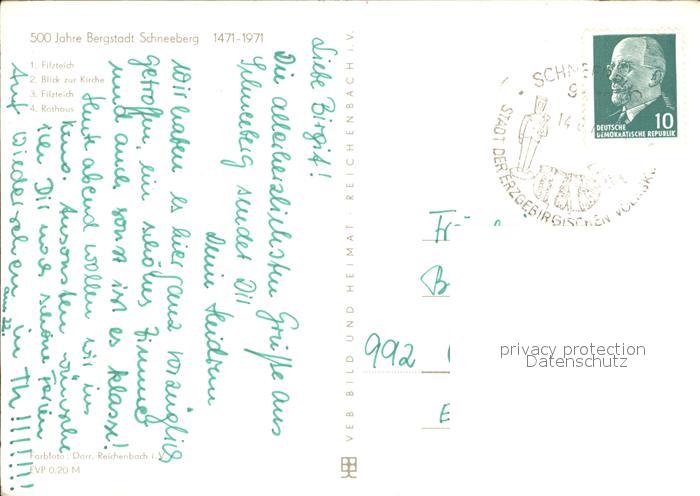 500 Jahre Bergstadt Schneeberg 1471-1971
1. Filzteich
2. Blick zur Kirche
3. Filzteich
4. Rathaus
Liebe Birgit!
Die allerherzlichsten Grüße aus
Schneeberg sendet Dir
Deine Heidrun
Wir haben es hier ganz vorzüglich
getroffen, ein schönes Zimmer
und auch sonst ist es klasse!
Heute abend wollen wir ins
Kino. Ansonsten wünsche
ich Dir noch schöne Ferien
Auf Wiedersehen in Th!!!!!!!
am 22.
Farbfoto: Darr, Reichenbach i. V.
EVP 0,20 M
VEB BILD UND HEIMAT · REICHENBACH i. V.
SCHNEEBERG
STADT DER ERZGEBIRGISCHEN
DEUTSCHE
DEMOKRATISCHE REPUBLIK
10
992
privacy protection
Datenschutz